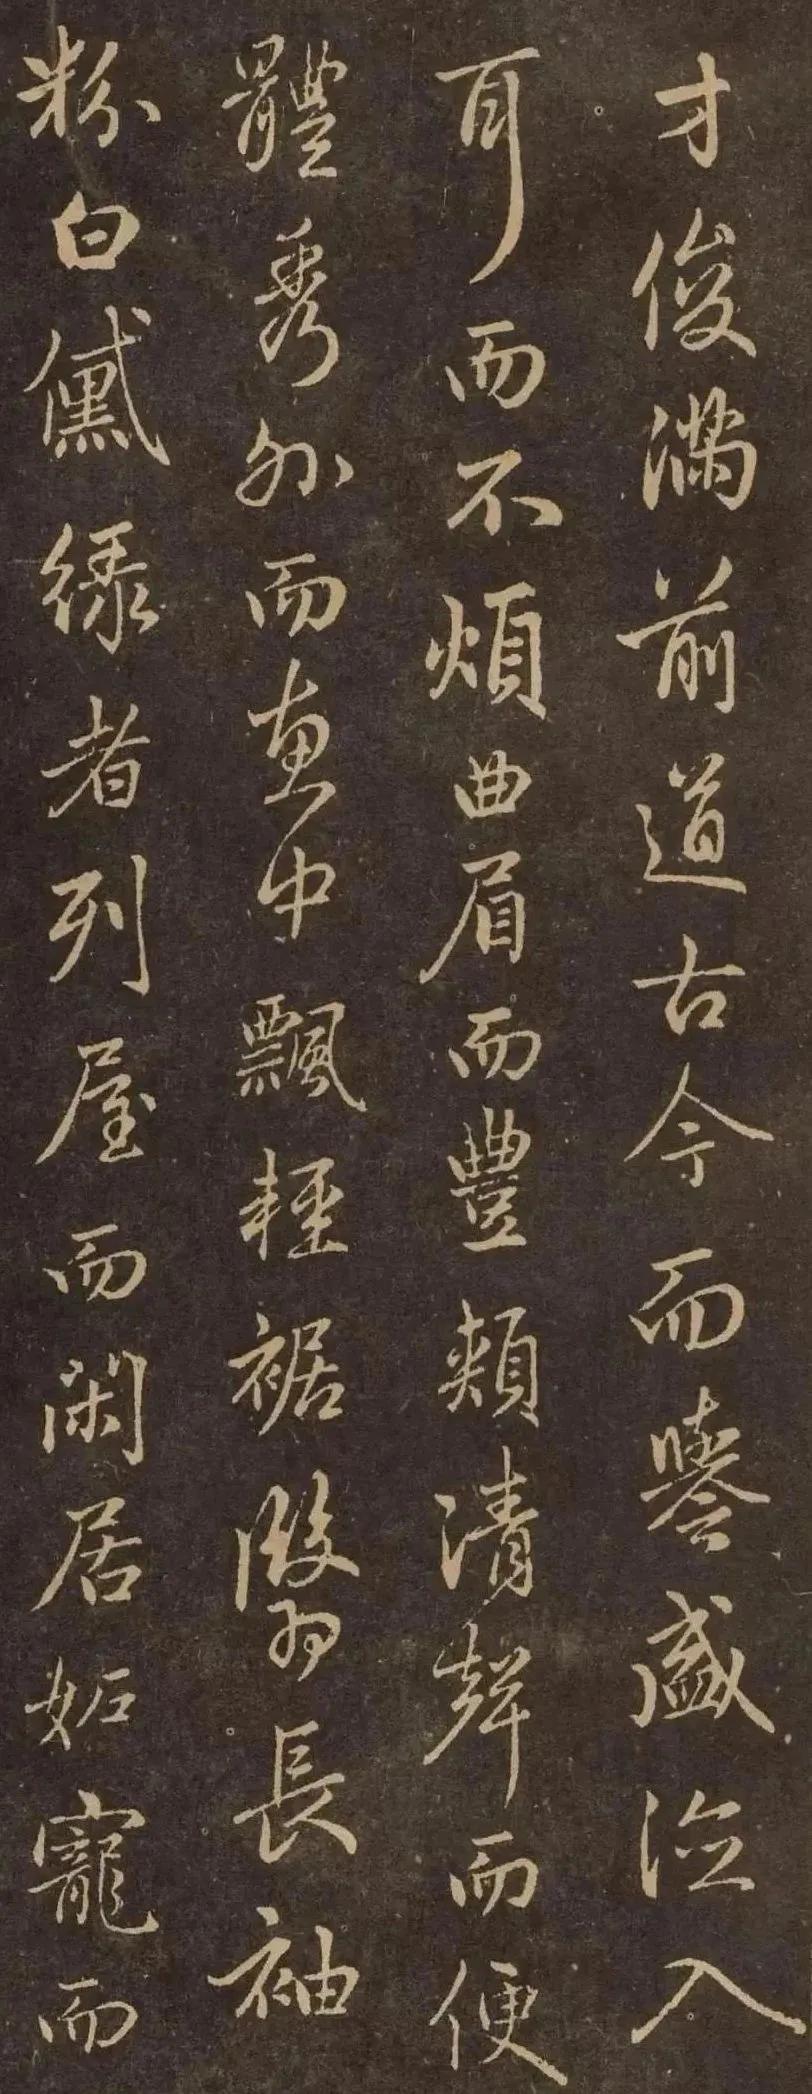 才俊滿前道古今而譽盛德入
耳而不煩曲眉而豐頰清聲而便
體秀外而惠中飄輕裾翳長袖
粉白黛綠者列屋而閑居妬寵而